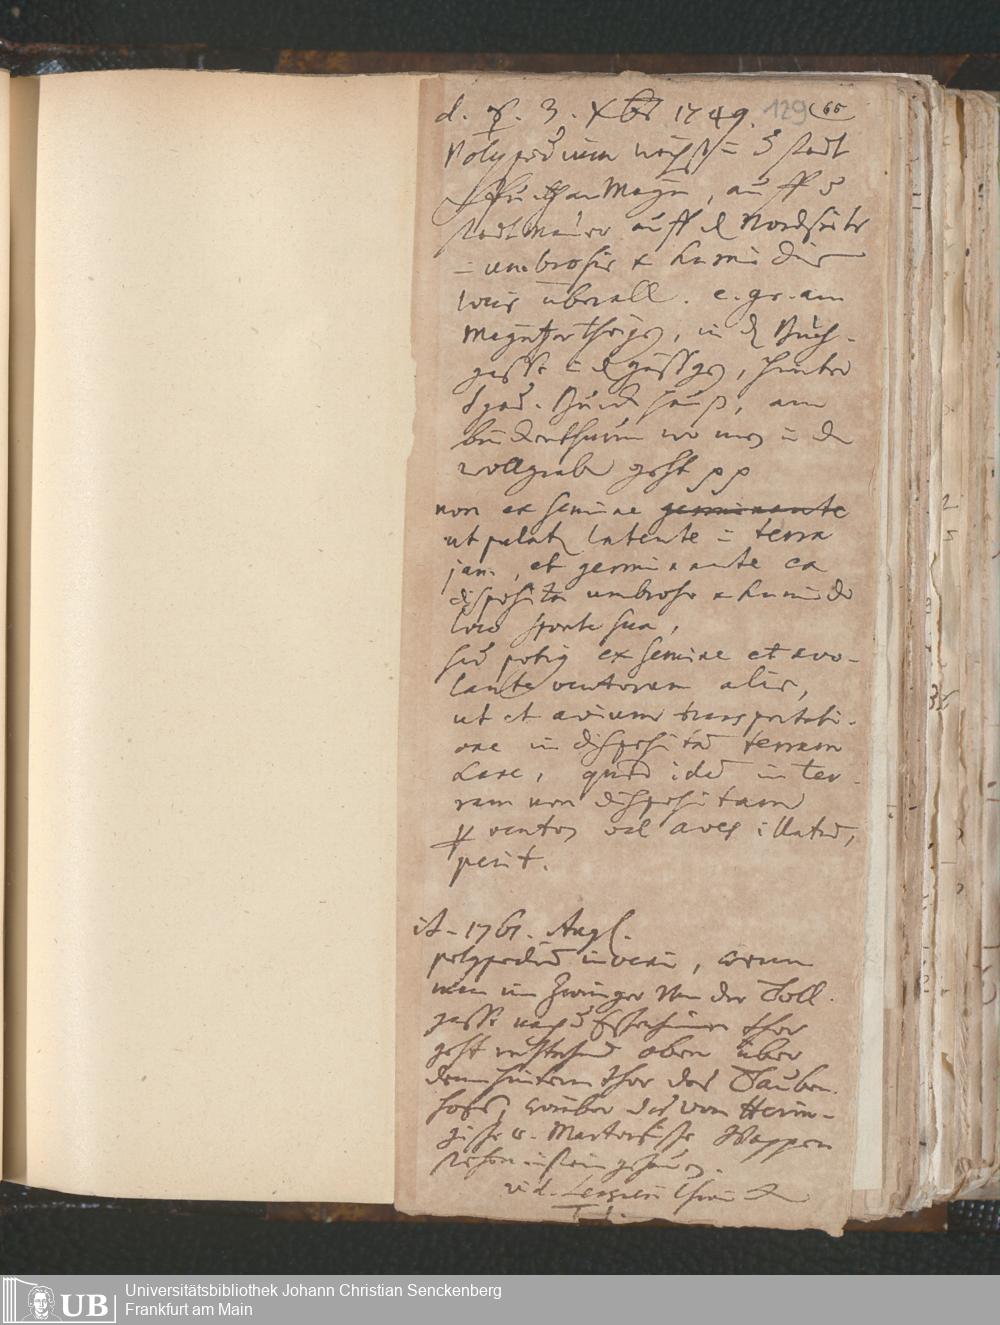 d. ☿. 3. Xbr 1749. 129 66
Polypodium wächst in d Stadt
Ffurth am Mayn, auff d
Stadtmauer auff d Nordseite
in umbrosis & humidis
locis überall. e. gr. am
Maynzerthörgen, in d Buch-
gasse in d gässgen, hinter
haus, am
wo man in den
wollgraben geht pp
non ex semine germinante
ut putatur latente in terra
jam, et germinante ea
disposita umbroso & humido
loco sponte sua,
sed potius ex semine et avo-
lante ventorum alis,
ut et avium transportati-
one in dispositam terram
lane, quod idem in ter-
ram non dispositam
per ventos vel aves illatum,
perit.
it. 1761. Aug.
polypodium inveni, worun
man im Zwinger von der Töll-
gasse nach d Eschenheimer thor
geht rechterhand oben über
dem hintern thor des Tauben-
hofs, worüber das von Hein-
u. Wappen
stehen in stein gehauen.
vid. Lersneri Chronik
T. I.
Universitätsbibliothek Johann Christian Senckenberg
Frankfurt am Main
UB